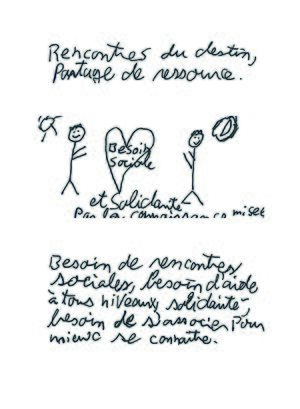 Rencontres du destin,
Partage de ressource.
Besoin
Sociale
et Solidarité
Par la connaissance mises
Besoin de rencontres
sociales, besoin d'aide
à tous niveaux, solidarité,
besoin de s'associer pour
mieux se connaître.